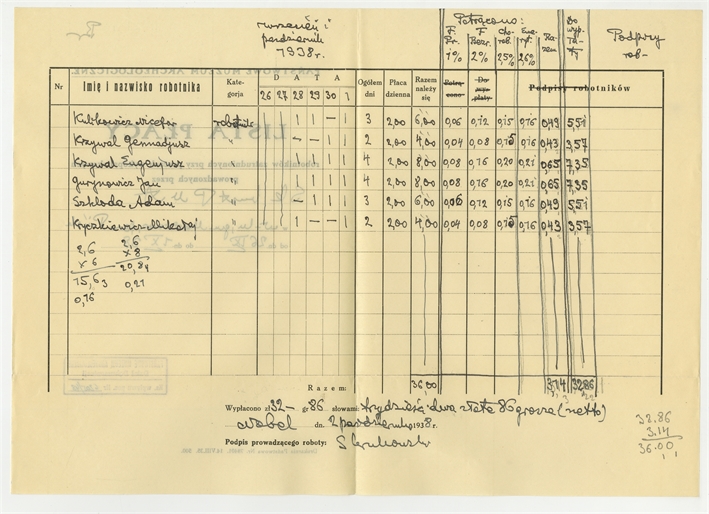 wrzesień i
październik
1938 r.
Potrącono:
F. Pr. 1%
F. Bezr. 2%
Cho- rob. 2,5%
Eme- ryt. 2,6%
Ra- zem
Do wyp- ła- ty
Podpisy rob-
Nr Imię i nazwisko robotnika Kate- gorja D A T A Ogółem dni Płaca dzienna Razem należy się Potrą- cono Do wy- płaty Podpisy robotników
26 27 28 29 30 1
Kulikowicz Nicefor robotnik 1 1 — 1 3 2,00 6,00 0,06 0,12 0,15 0,16 0,49 5,51
Krzywal Gennadjusz " 2 2,00 4,00 0,04 0,08 0,15 0,16 0,43 3,57
Krzywal Eugenjusz " 4 2,00 8,00 0,08 0,16 0,20 0,21 0,65 7,35
Gurynowicz Jan " 4 2,00 8,00 0,08 0,16 0,20 0,21 0,65 7,35
Szkłoda Adam " 3 2,00 6,00 0,06 0,12 0,15 0,16 0,49 5,51
Kryczkiewicz Mikołaj " 2 2,00 4,00 0,04 0,08 0,15 0,16 0,43 3,57
2,6 2,6
x 6 x 8
15,6 20,8
0,16 0,21
Razem: 36,00 3,14 32,86
Wypłacono zł 32— gr 86 słowami: trzydzieści dwa złote 86 grosza (netto)
dn. 2 października 1938 r.
Podpis prowadzącego roboty:
32.86
3.14
36.00